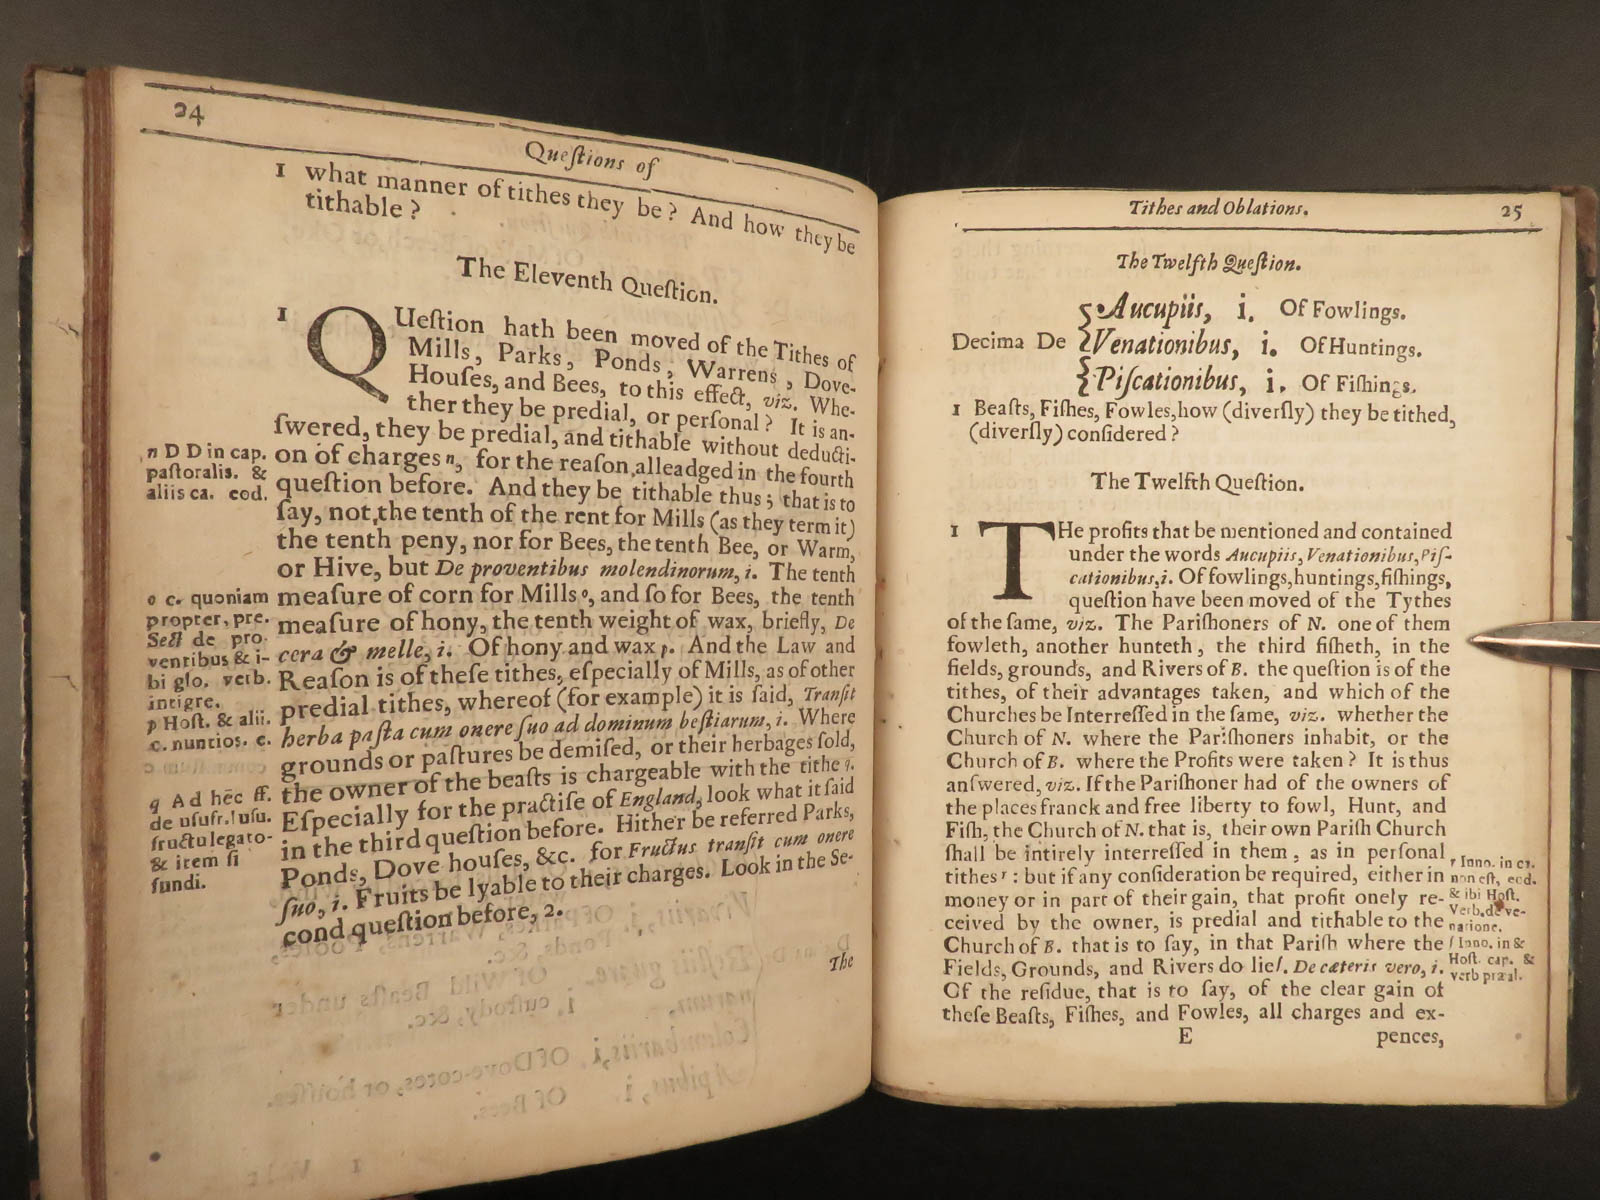 24
Queſtions of
1 what manner of tithes they be? And how they be
tithable?
The Eleventh Queſtion.
1 QUeſtion hath been moved of the Tithes of
Mills, Parks, Ponds, Warrens, Dove-
Houſes, and Bees, to this effect, viz. Whe-
ther they be predial, or perſonal? It is an-
ſwered, they be predial, and tithable without deducti-
on of charges n, for the reaſon alleadged in the fourth
queſtion before. And they be tithable thus; that is to
ſay, not the tenth of the rent for Mills (as they term it)
the tenth peny, nor for Bees, the tenth Bee, or Warm,
or Hive, but De proventibus molendinorum, i. The tenth
meaſure of corn for Mills o, and ſo for Bees, the tenth
meaſure of hony, the tenth weight of wax, briefly, De
cera & melle, i. Of hony and wax p. And the Law and
Reaſon is of theſe tithes, eſpecially of Mills, as of other
predial tithes, whereof (for example) it is ſaid, Tranſit
herba paſta cum onere ſuo ad dominum beſtiarum, i. Where
grounds or paſtures be demiſed, or their herbages ſold,
the owner of the beaſts is chargeable with the tithe q.
Eſpecially for the practiſe of England, look what it ſaid
in the third queſtion before. Hither be referred Parks,
Ponds, Dove houſes, &c. for Fructus tranſit cum onere
ſuo, i. Fruits be lyable to their charges. Look in the Se-
cond queſtion before, 2.
The
n D D in cap.
paſtoralis. &
aliis ca. eod.
o c. quoniam
propter, pre.
Sect de pro
ventibus & i-
bi glo. verb.
intigre.
p Hoſt. & alii.
c. nuntios. e.
q Ad hēc ff.
de uſufr. l uſu.
fructu legato-
& item ſi
fundi.
Tithes and Oblations.
25
The Twelfth Queſtion.
Aucupiis, i. Of Fowlings.
Decima De Venationibus, i. Of Huntings.
Piſcationibus, i. Of Fiſhings.
1 Beaſts, Fiſhes, Fowles, how (diverſly) they be tithed,
(diverſly) conſidered?
The Twelfth Queſtion.
1 THe profits that be mentioned and contained
under the words Aucupiis, Venationibus, Piſ-
cationibus, i. Of fowlings, huntings, fiſhings,
queſtion have been moved of the Tythes
of the ſame, viz. The Pariſhoners of N. one of them
fowleth, another hunteth, the third fiſheth, in the
fields, grounds, and Rivers of B. the queſtion is of the
tithes, of their advantages taken, and which of the
Churches be Interreſſed in the ſame, viz. whether the
Church of N. where the Pariſhoners inhabit, or the
Church of B. where the Profits were taken? It is thus
anſwered, viz. If the Pariſhoner had of the owners of
the places franck and free liberty to fowl, Hunt, and
Fiſh, the Church of N. that is, their own Pariſh Church
ſhall be intirely interreſſed in them, as in perſonal
tithes r: but if any conſideration be required, either in
money or in part of their gain, that profit onely re-
ceived by the owner, is predial and tithable to the
Church of B. that is to ſay, in that Pariſh where the
Fields, Grounds, and Rivers do lie ſ. De cæteris vero, i.
Of the reſidue, that is to ſay, of the clear gain of
theſe Beaſts, Fiſhes, and Fowles, all charges and ex-
E
pences,
r Inno. in ca.
non eſt, eod.
& ibi Hoſt.
Verb. de ve-
natione.
ſ Inno. in &
Hoſt. cap. &
verb præal.